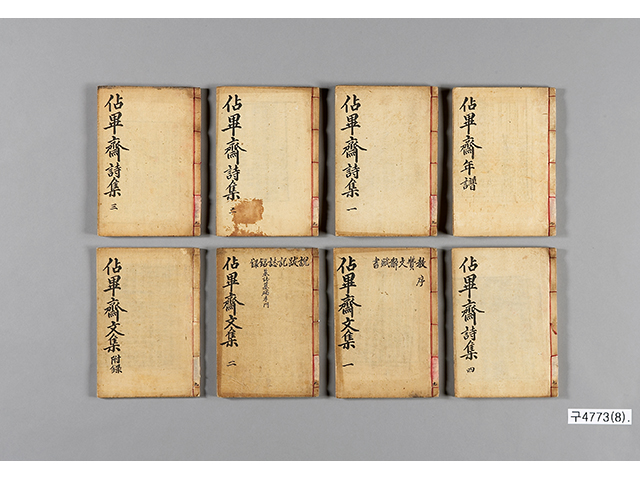 佔畢齋年譜
佔畢齋詩集 一
佔畢齋詩集 二
佔畢齋詩集 三
佔畢齋詩集 四
教書
序
佔畢齋文集 一
說跋記誌銘錄
佔畢齋文集 二
佔畢齋文集 附錄
구4773(8).